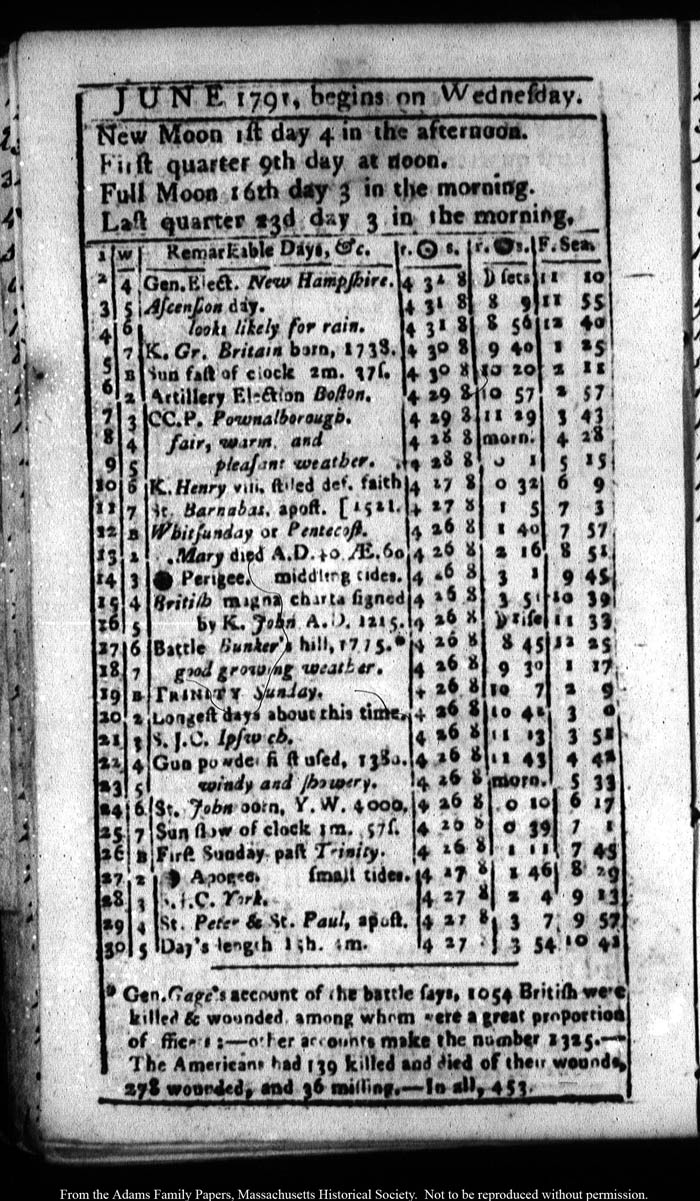 JUNE 1791, begins on Wednesday.
New Moon 1st day 4 in the afternoon.
First quarter 9th day at noon.
Full Moon 16th day 3 in the morning.
Last quarter 23d day 3 in the morning.
1 W Remarkable Days, &c. r. ☉ s. r. ● s. F. Sea.
2 4 Gen. Elect. New Hampshire. 4 31 8 ☽ sets 11 10
3 5 Ascension day. 4 31 8 8 9 11 55
4 6 looks likely for rain. 4 31 8 8 56 12 40
5 7 K. Gr. Britain born, 1738. 4 30 8 9 40 1 25
6 B Sun fast of clock 2m. 37s. 4 30 8 10 20 2 11
2 Artillery Election Boston. 4 29 8 10 57 2 57
7 3 CC.P. Pownalborough. 4 29 8 11 29 3 43
8 4 fair, warm and 4 28 8 morn. 4 28
9 5 pleasant weather. 4 28 8 0 1 5 15
10 6 K. Henry viii. stiled def. faith 4 27 8 0 32 6 9
11 7 St. Barnabas, apost. [1521. 4 27 8 1 5 7 3
12 B Whitsunday or Pentecost. 4 26 8 1 40 7 57
13 2 Mary died A.D. 40 Æ. 60 4 26 8 2 16 8 51
14 3 ● Perigee. middling tides. 4 26 8 3 1 9 45
15 4 British magna charta signed 4 26 8 3 51 10 39
16 5 by K. John A.D. 1215. 4 26 8 ☽ rise 11 33
17 6 Battle Bunker's hill, 1775.* 4 26 8 8 45 12 25
18 7 good growing weather. 4 26 8 9 30 1 17
19 B TRINITY Sunday. 4 26 8 10 7 2 9
20 2 Longest days about this time. 4 26 8 10 42 3 0
21 3 S. J.C. Ipswich. 4 26 8 11 13 3 52
22 4 Gun powder first used, 1380. 4 26 8 11 43 4 42
23 5 windy and showery. 4 26 8 morn. 5 33
24 6 St. John born, Y.W. 4000. 4 26 8 0 10 6 17
25 7 Sun slow of clock 1m. 57s. 4 26 8 0 39 7 1
26 B First Sunday past Trinity. 4 26 8 1 11 7 45
27 2 ☽ Apogee. small tides. 4 27 8 1 46 8 29
28 3 S.J.C. York. 4 27 8 2 4 9 13
29 4 St. Peter & St. Paul, apost. 4 27 8 3 7 9 57
30 5 Day's length 15h. m. 4 27 8 3 54 10 42
* Gen. Gage's account of the battle says, 1054 British were
killed & wounded, among whom were a great proportion
of officers:—other accounts make the number 1325.—
The Americans had 139 killed and died of their wounds,
278 wounded, and 36 missing.—In all, 453.
From the Adams Family Papers, Massachusetts Historical Society. Not to be reproduced without permission.